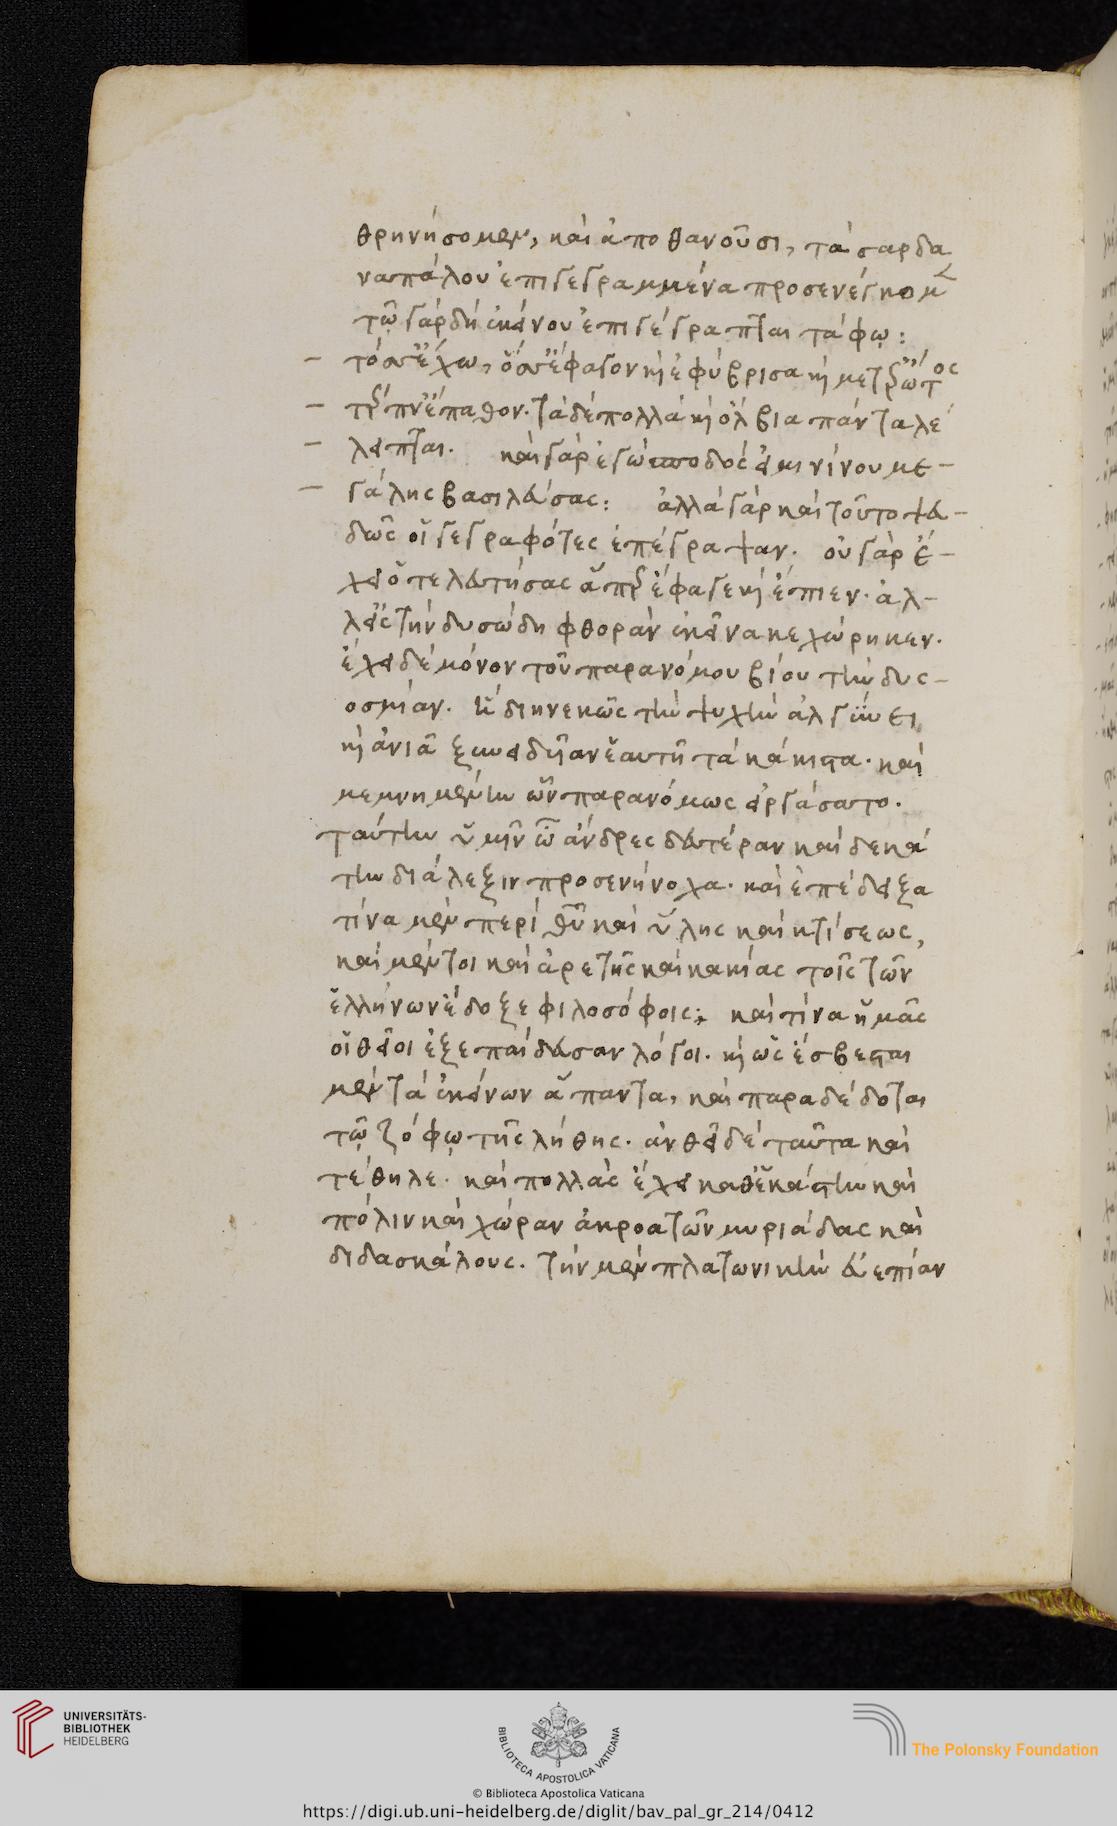 θρηνήσομεν, καὶ ἀποθανοῦσι, τὰ σαρδα
ναπάλου ἐπιγεγραμμένα προσενέγκομ
τῷ γὰρ δὴ ἐκείνου ἐπιγέγραπται τάφῳ:
ἔχω, ἔφαγον κὶ ἐφύβρισα κὶ μετ ἔρωτος
τέρπν ἔπαθον. τὰ δὲ πολλὰ κὶ ὄλβια πάντα λέ
λειπται. καὶ γὰρ ἐγὼ σποδός εἰμι νίνου με-
γάλης βασιλεύσας: ἀλλὰ γὰρ καὶ τοῦτο ψευ-
δῶς οἱ γεγραφότες ἐπέγραψαν. οὐ γὰρ ἔ-
χει ὁ τελευτήσας ἅπερ ἔφαγε κὶ ἔπιεν. ἀλ-
λ' εἰς τὴν δυσώδη φθορὰν ἐκεῖνα κεχώρηκεν.
ἔχει δὲ μόνον τοῦ παρανόμου βίου τὴν δυς-
οσμίαν. ἣ διηνεκῶς τὴν ψυχὴν ἀλγύνει
κὶ ἀνιᾷ ξυνειδυῖαν ἑαυτῇ τὰ κάκιστα. καὶ
μεμνημένην ὧν παρανόμως εἰργάσατο.
ταύτην ὑμῖν ὦ ἄνδρες δευτέραν καὶ δεκά
την διάλεξιν προσενήνοχα. καὶ ἐπέδειξα
τίνα μὲν περὶ θυ καὶ ὕλης καὶ κτίσεως,
καὶ μέντοι καὶ ἀρετῆς καὶ κακίας τοῖς τῶν
ἑλλήνων ἔδοξε φιλοσόφοις; καὶ τίνα ἡμᾶς
οἱ θεῖοι ἐξεπαίδευσαν λόγοι. κὶ ὡς ἔσβεσται
μὲν τὰ ἐκείνων ἅπαντα, καὶ παραδέδοται
τῷ ζόφῳ τῆς λήθης. ἀνθεῖ δὲ ταῦτα καὶ
τέθηλε. καὶ πολλὰς ἔχει καθ' ἑκάστην καὶ
πόλιν καὶ χώραν ἀκροατῶν μυριάδας καὶ
διδασκάλους. τὴν μὲν πλατωνικὴν εὐεπίαν
UNIVERSITÄTS-
BIBLIOTHEK
HEIDELBERG
BIBLIOTECA APOSTOLICA VATICANA
The Polonsky Foundation
© Biblioteca Apostolica Vaticana
https://digi.ub.uni-heidelberg.de/diglit/bav_pal_gr_214/0412